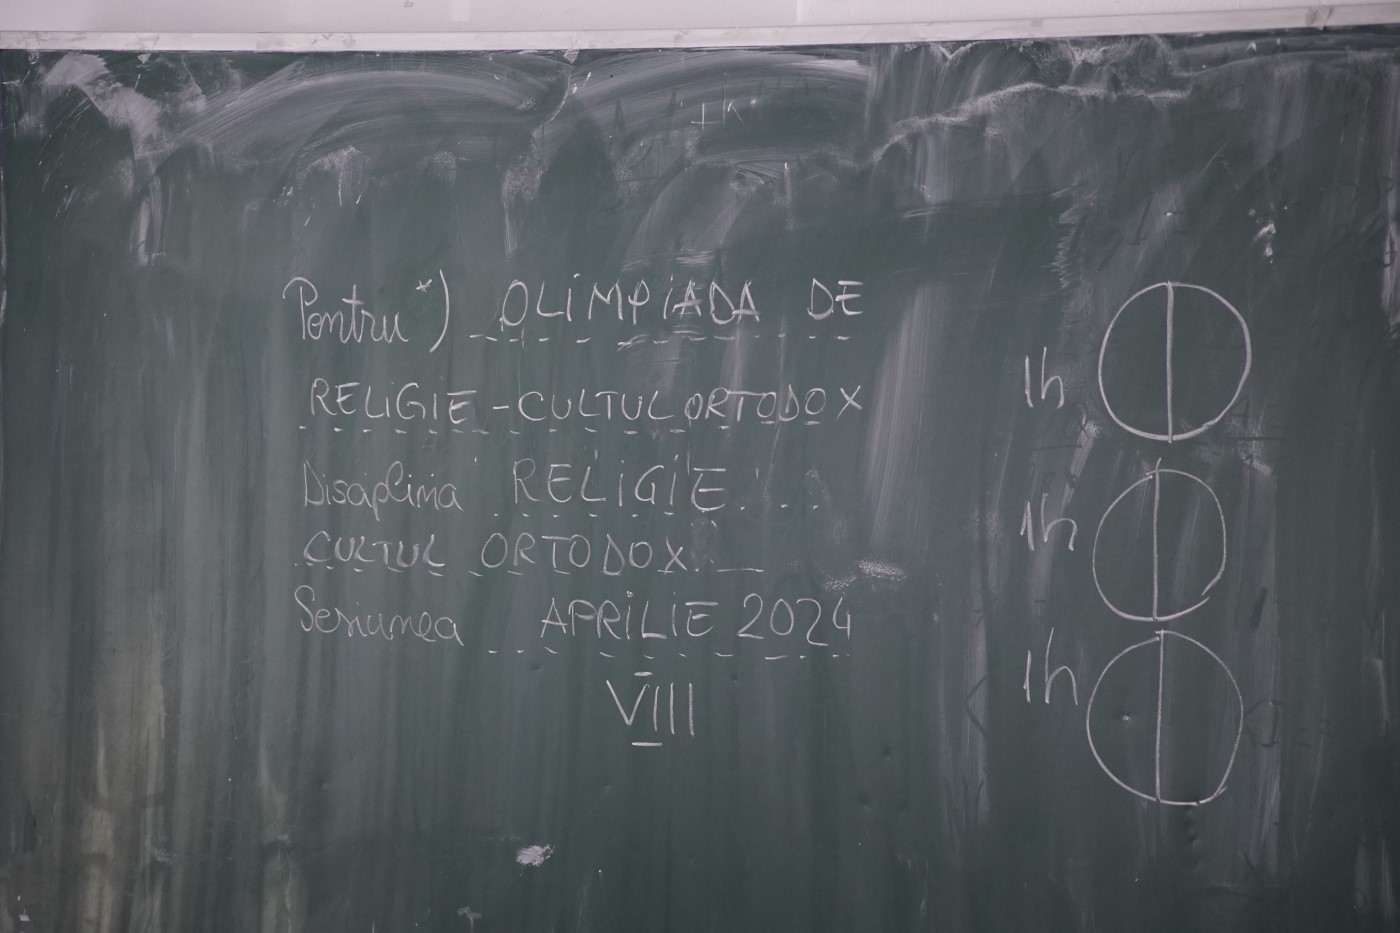 Pentru *) OLIMPIADA DE
RELIGIE - CULTUL ORTODOX
Disciplina RELIGIE
CULTUL ORTODOX
Sesiunea APRILIE 2024
VIII
1h
1h
1h